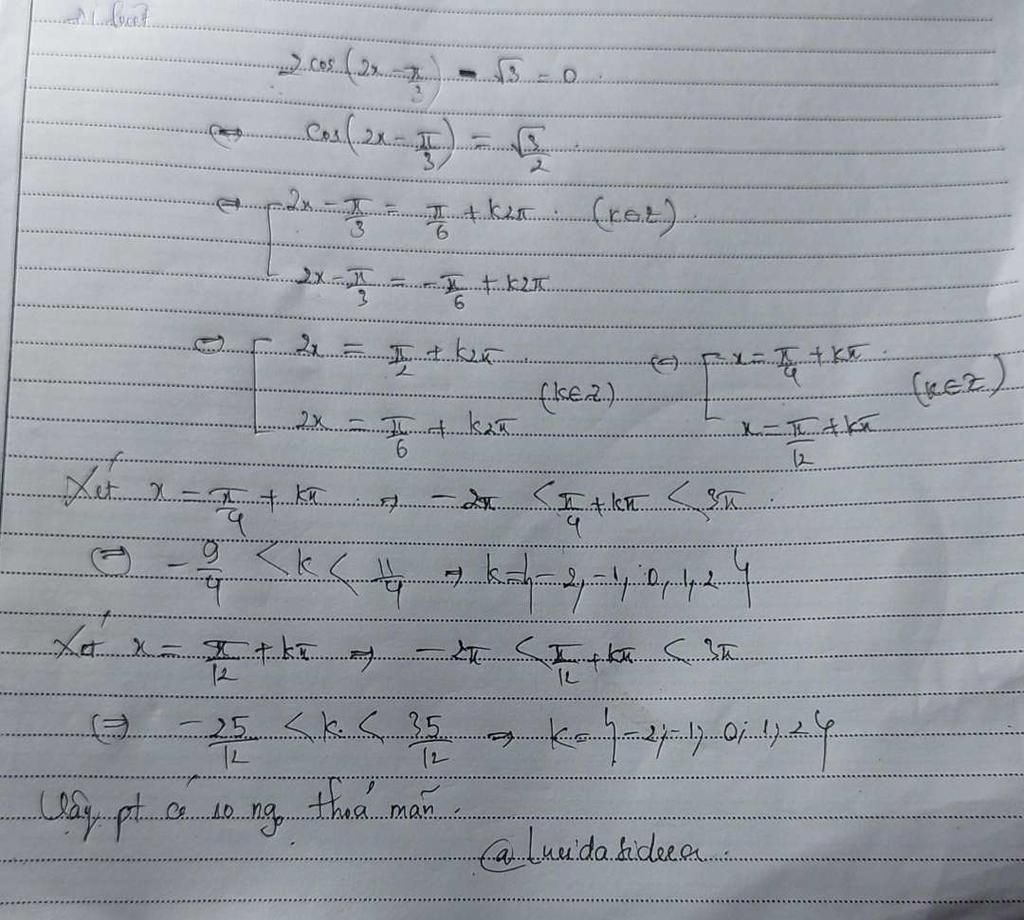 2cos(2x - π/3) - √3 = 0
⇔ cos(2x - π/3) = √3/2
⇔ [ 2x - π/3 = π/6 + k2π. (k∈Z)
2x - π/3 = -π/6 + k2π
⇔ [ 2x = π/2 + k2π ⇔ [ x = π/4 + kπ.
(k∈Z) (k∈Z)
2x = π/6 + k2π x = π/12 + kπ
Xét x = π/4 + kπ ⇒ -2π < π/4 + kπ < 3π.
⇔ -9/4 < k < 11/4 ⇒ k = {-2, -1, 0, 1, 2}
Xét x = π/12 + kπ ⇒ -2π < π/12 + kπ < 3π
⇔ -25/12 < k < 35/12 ⇒ k = {-2; -1; 0; 1; 2}
Vậy pt có 10 ng thoả mãn.
@Lucidasideera.